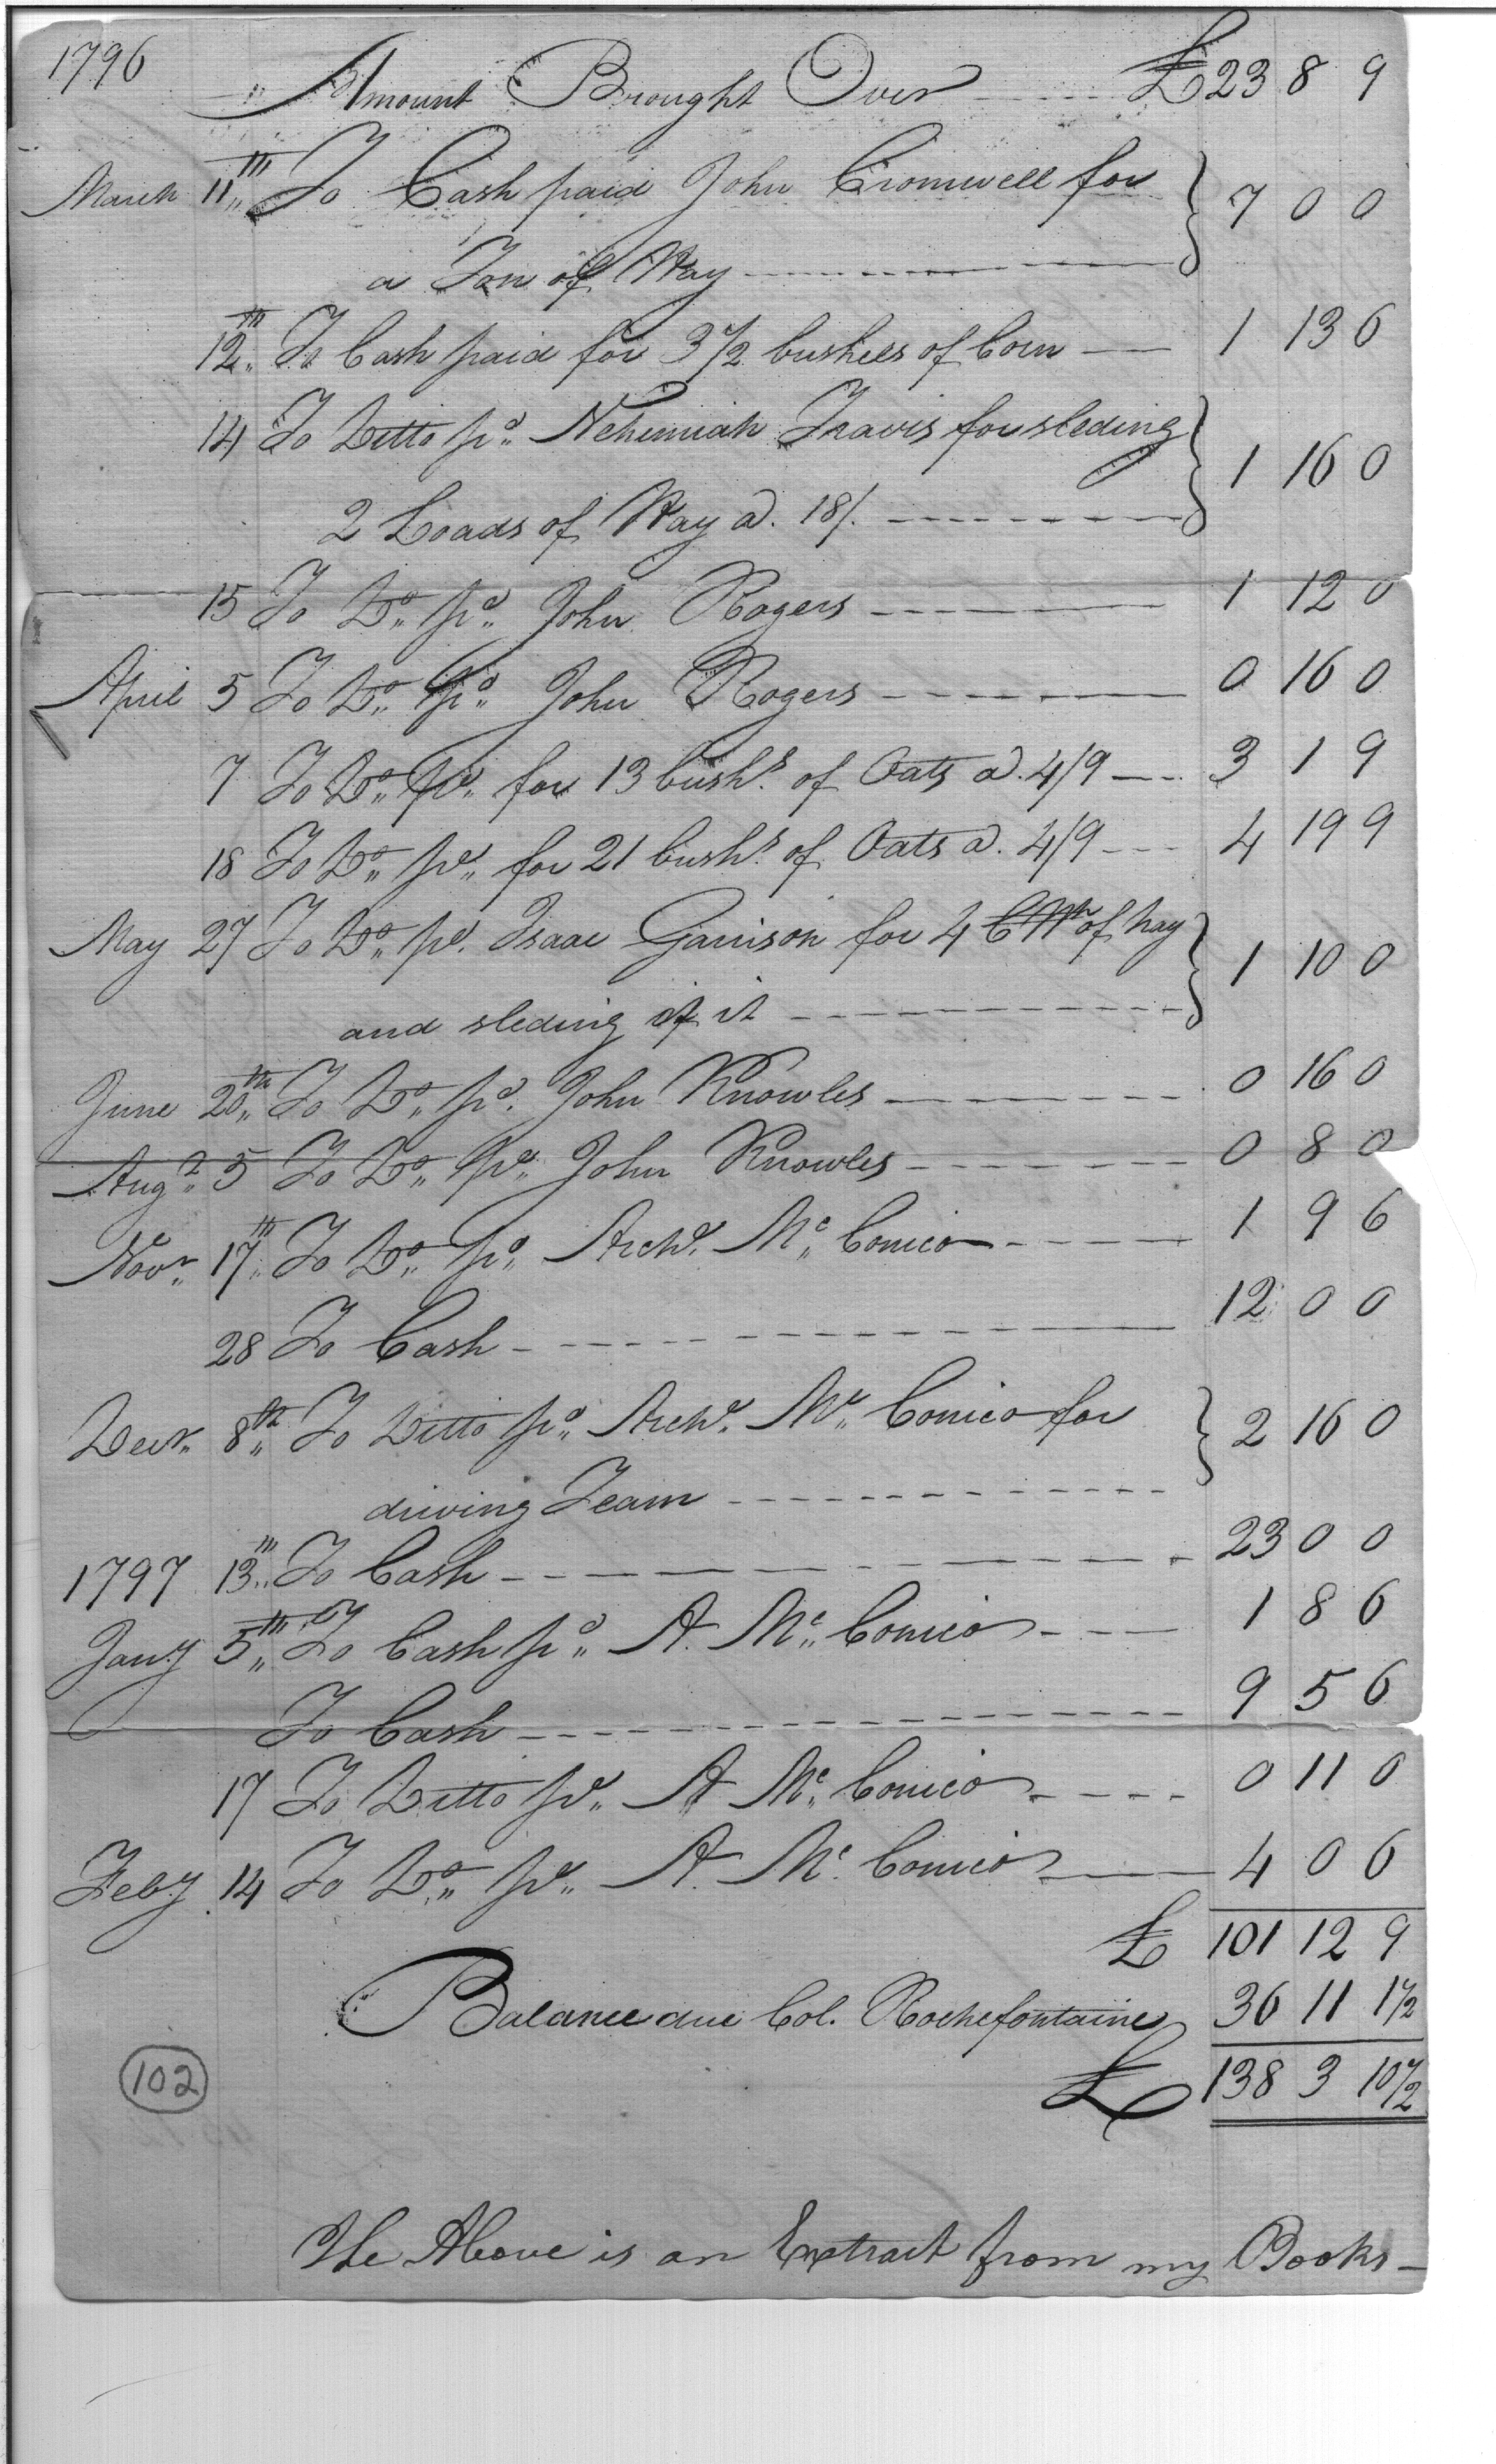 1796 Amount Brought Over £23 8 9
March 11th To Cash paid John Cromwell for
a Ton of Hay 7 0 0
12th To Cash paid for 3 1/2 bushels of Corn 1 13 6
14 To Ditto pd. Nehemiah Travis for sleding
2 Loads of Hay a. 18/. 1 16 0
15 To Do. pd. John Rogers 1 12 0
April 5 To Do. pd. John Rogers 0 16 0
7 To Do. pd. for 13 bushs. of Oats a. 4/9 3 1 9
18 To Do. pd. for 21 bushs. of Oats a. 4/9 4 19 9
May 27 To Do. pd. Isaac Garrison for 4 CWt of hay
and sleding of it 1 10 0
June 20th To Do. pd. John Knowles 0 16 0
Augt. 5 To Do. pd. John Knowles 0 8 0
Novr. 17th To Do. pd. Archd. Mc. Conico 1 9 6
28 To Cash 12 0 0
Decr. 8th To Ditto pd. Archd. Mc. Conico for
driving Team 2 16 0
13th To Cash 23 0 0
1797
Jany 5th By To Cash pd. A. Mc. Conico 1 8 6
To Cash 9 5 6
17 To Ditto pd. A Mc. Conico 0 11 0
Feby. 14 To Do. pd. A. Mc. Conico 4 0 6
£ 101 12 9
Balance due Col. Rochefontaine 36 11 1 1/2
£ 138 3 10 1/2
102
The Above is an Extract from my Books